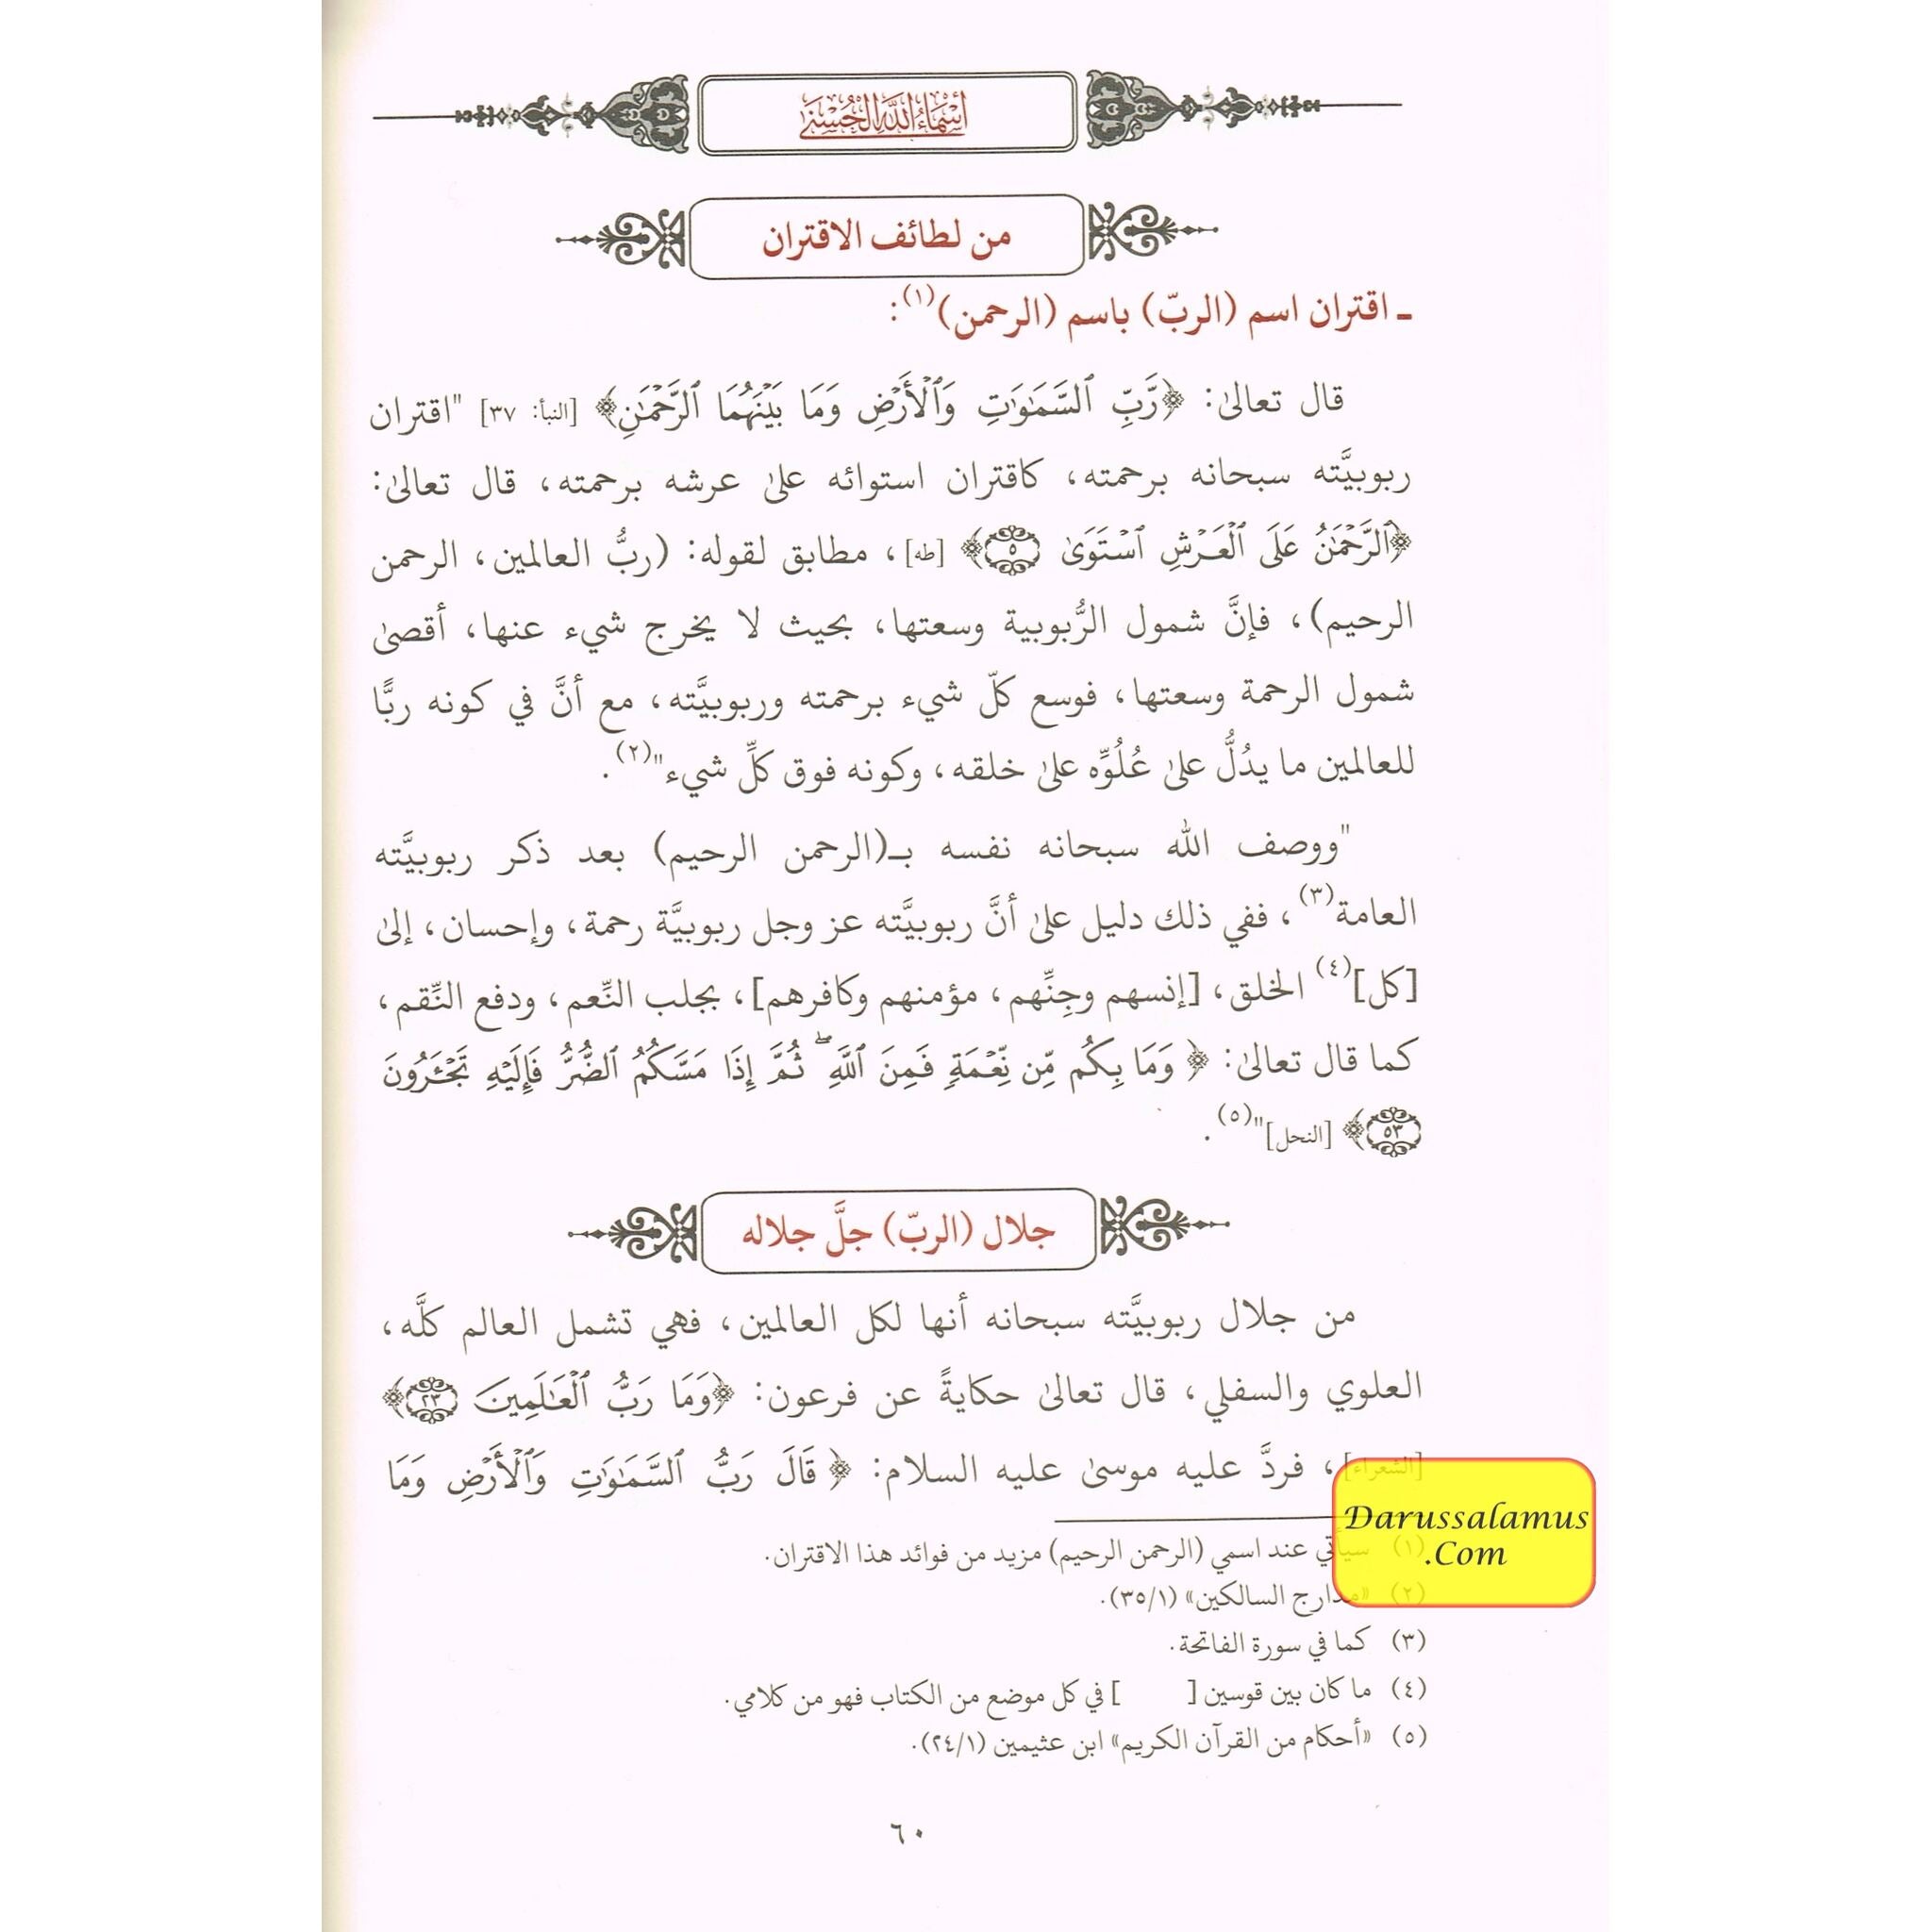 أسماء الله الحسنى
من لطائف الاقتران
ـ اقتران اسم (الربّ) باسم (الرحمن)(١):
قال تعالىٰ: ﴿رَّبِّ ٱلسَّمَٰوَٰتِ وَٱلۡأَرۡضِ وَمَا بَيۡنَهُمَا ٱلرَّحۡمَٰنِ﴾ [النبأ: ٣٧] "اقتران
ربوبيَّته سبحانه برحمته، كاقتران استوائه علىٰ عرشه برحمته، قال تعالىٰ:
﴿ٱلرَّحۡمَٰنُ عَلَى ٱلۡعَرۡشِ ٱسۡتَوَىٰ ٥﴾ [طه]، مطابق لقوله: (ربُّ العالمين، الرحمن
الرحيم)، فإنَّ شمول الرُّبوبية وسعتها، بحيث لا يخرج شيء عنها، أقصىٰ
شمول الرحمة وسعتها، فوسع كلّ شيء برحمته وربوبيَّته، مع أنَّ في كونه ربًّا
للعالمين ما يدُلُّ علىٰ عُلُوِّه علىٰ خلقه، وكونه فوق كلِّ شيء"(٢).
"ووصف الله سبحانه نفسه بـ(الرحمن الرحيم) بعد ذكر ربوبيَّته
العامة(٣)، ففي ذلك دليل علىٰ أنَّ ربوبيَّته عز وجل ربوبيَّة رحمة، وإحسان، إلىٰ
[كل](٤) الخلق، [إنسهم وجِنِّهم، مؤمنهم وكافرهم]، بجلب النِّعم، ودفع النِّقم،
كما قال تعالىٰ: ﴿وَمَا بِكُم مِّن نِّعۡمَةٖ فَمِنَ ٱللَّهِۖ ثُمَّ إِذَا مَسَّكُمُ ٱلضُّرُّ فَإِلَيۡهِ تَجۡـَٔرُونَ
٥٣﴾ [النحل]"(٥).
جلال (الربّ) جلَّ جلاله
من جلال ربوبيَّته سبحانه أنها لكل العالمين، فهي تشمل العالم كلَّه،
العلوي والسفلي، قال تعالىٰ حكايةً عن فرعون: ﴿وَمَا رَبُّ ٱلۡعَٰلَمِينَ ٢٣﴾
[الشعراء]، فردَّ عليه موسىٰ عليه السلام: ﴿قَالَ رَبُّ ٱلسَّمَٰوَٰتِ وَٱلۡأَرۡضِ وَمَا
(١) سيأتي عند اسمي (الرحمن الرحيم) مزيد من فوائد هذا الاقتران.
(٢) «مدارج السالكين» (٣٥/١).
(٣) كما في سورة الفاتحة.
(٤) ما كان بين قوسين [ ] في كل موضع من الكتاب فهو من كلامي.
(٥) «أحكام من القرآن الكريم» ابن عثيمين (٢٤/١).
٦٠
Darussalamus
.Com